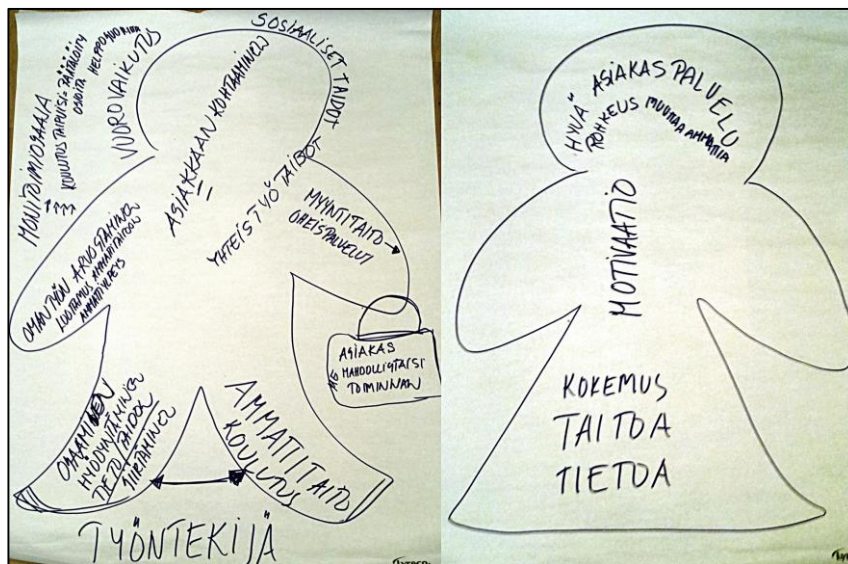 SOSIAALISET TAIDOT
MONITOIMIOSAAJA
VUOROVAIKUTUS
ASIAKKAAN KOHTAAMINEN
YHTEISTYÖTAIDOT
MYYNTITAITO
OHEISPALVELUT
OMAN TYÖN ARVOSTAMINEN
LUOTTAMUS AMMATTITAITOON
AMMATTIYLPEYS
ASIAKAS
MAHDOLLISTAISI
TOIMINNAN
OSAAMINEN
HYÖDYNTÄMINEN
TIETO/TAIDON
SIIRTÄMINEN
AMMATTITAITO
KOULUTUS
TYÖNTEKIJÄ
HYVÄ ASIAKASPALVELU
ROHKEUS MUUTTAA AMMATTIA
MOTIVAATIO
KOKEMUS
TAITOA
TIETOA